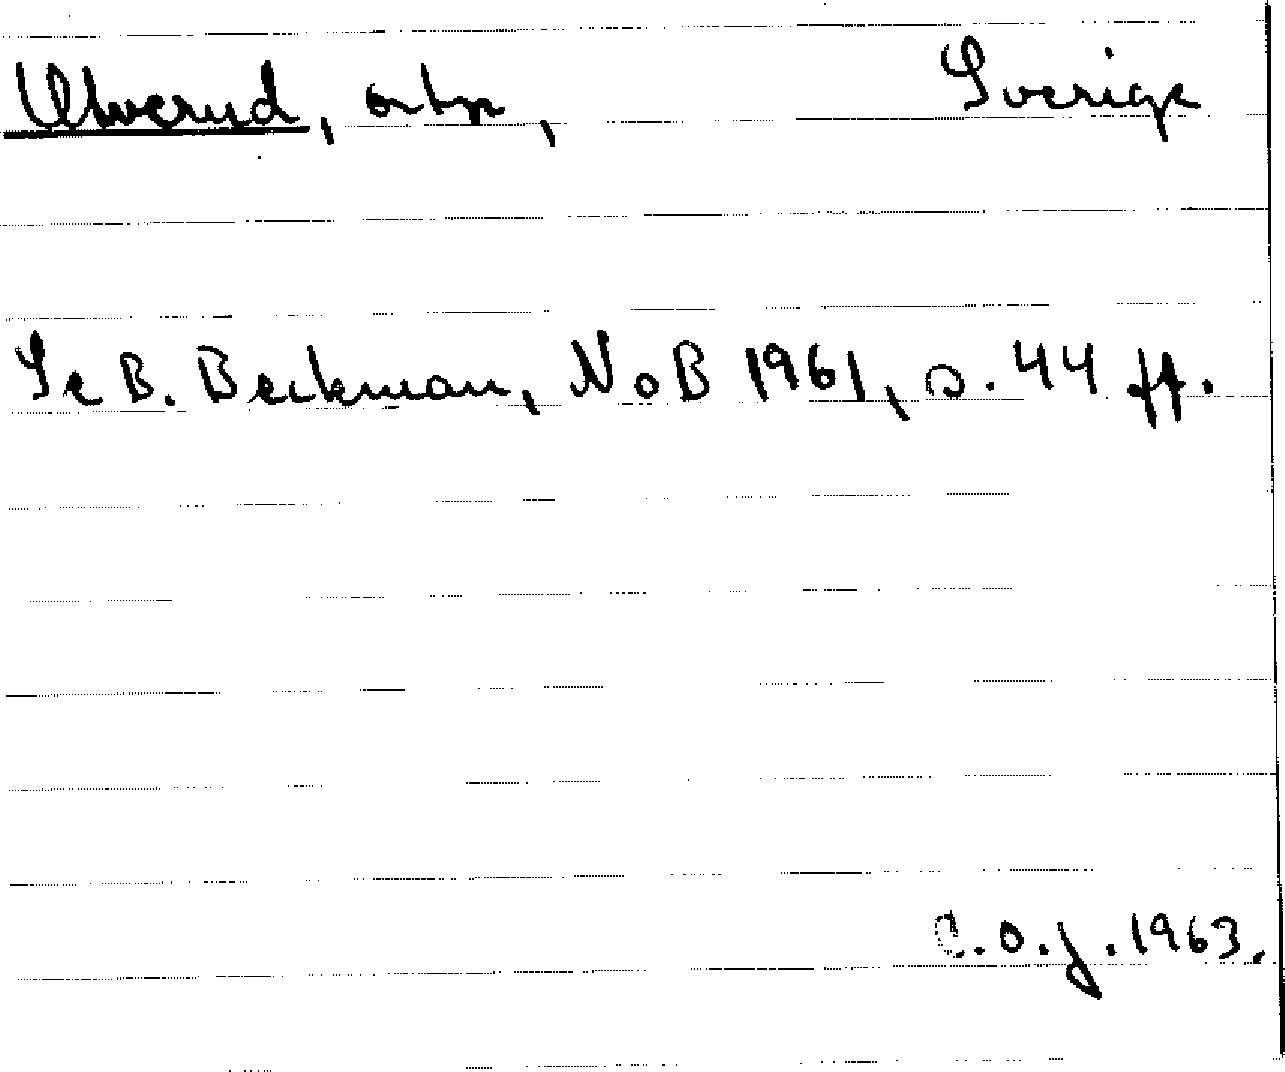 Ulverud, ortn, Sverige
Se B. Beckman, NoB 1961, s. 44 ff.
C.O.J. 1963.